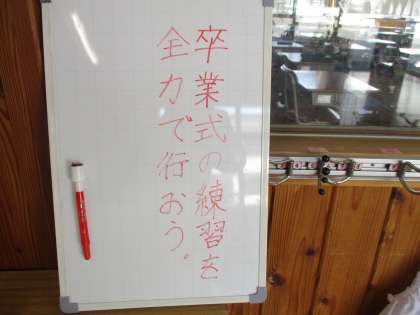 卒業式の練習を
全力で行おう。